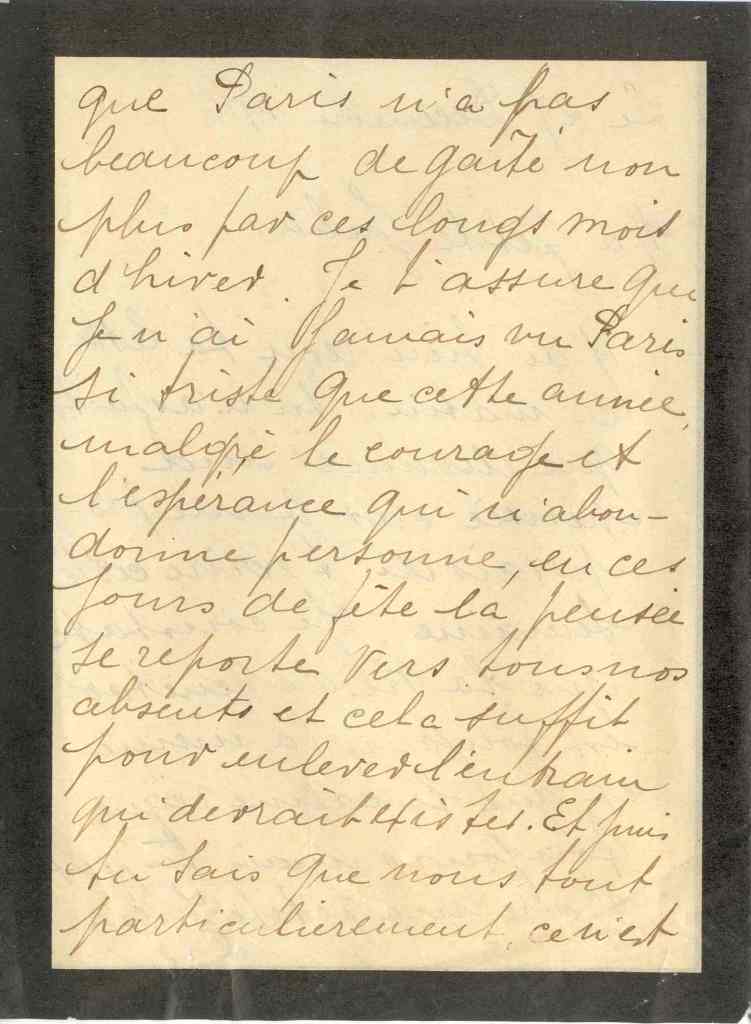 que Paris n'a pas
beaucoup de gaité non
plus par ces longs mois
d'hiver. Je t'assure que
je n'ai jamais vu Paris
si triste que cette année,
malgré le courage et
l'espérance qui n'abon-
donne personne, en ces
jours de fête la pensée
se reporte vers tous nos
absents et cela suffit
pour enlever l'entrain
qui devrait exister. Et puis
tu sais que nous tout
particulierement, ce n'est